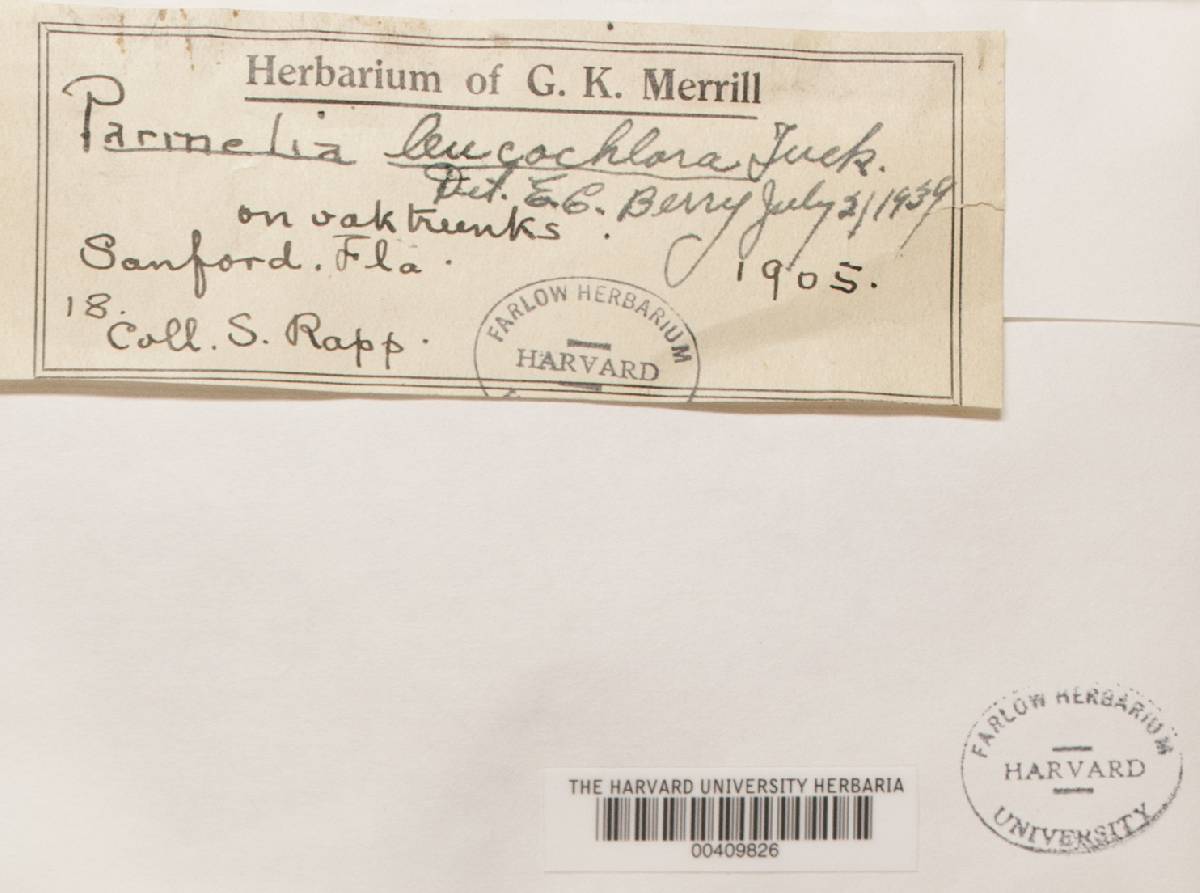 Herbarium of G. K. Merrill
Parmelia leucochlora Tuck.
Det. E.C. Berry July 21 1939
on oak trunks.
Sanford. Fla. 1905.
18.
Coll. S. Rapp.
FARLOW HERBARIUM
HARVARD
FARLOW HERBARIUM
HARVARD
UNIVERSITY
THE HARVARD UNIVERSITY HERBARIA
00409826